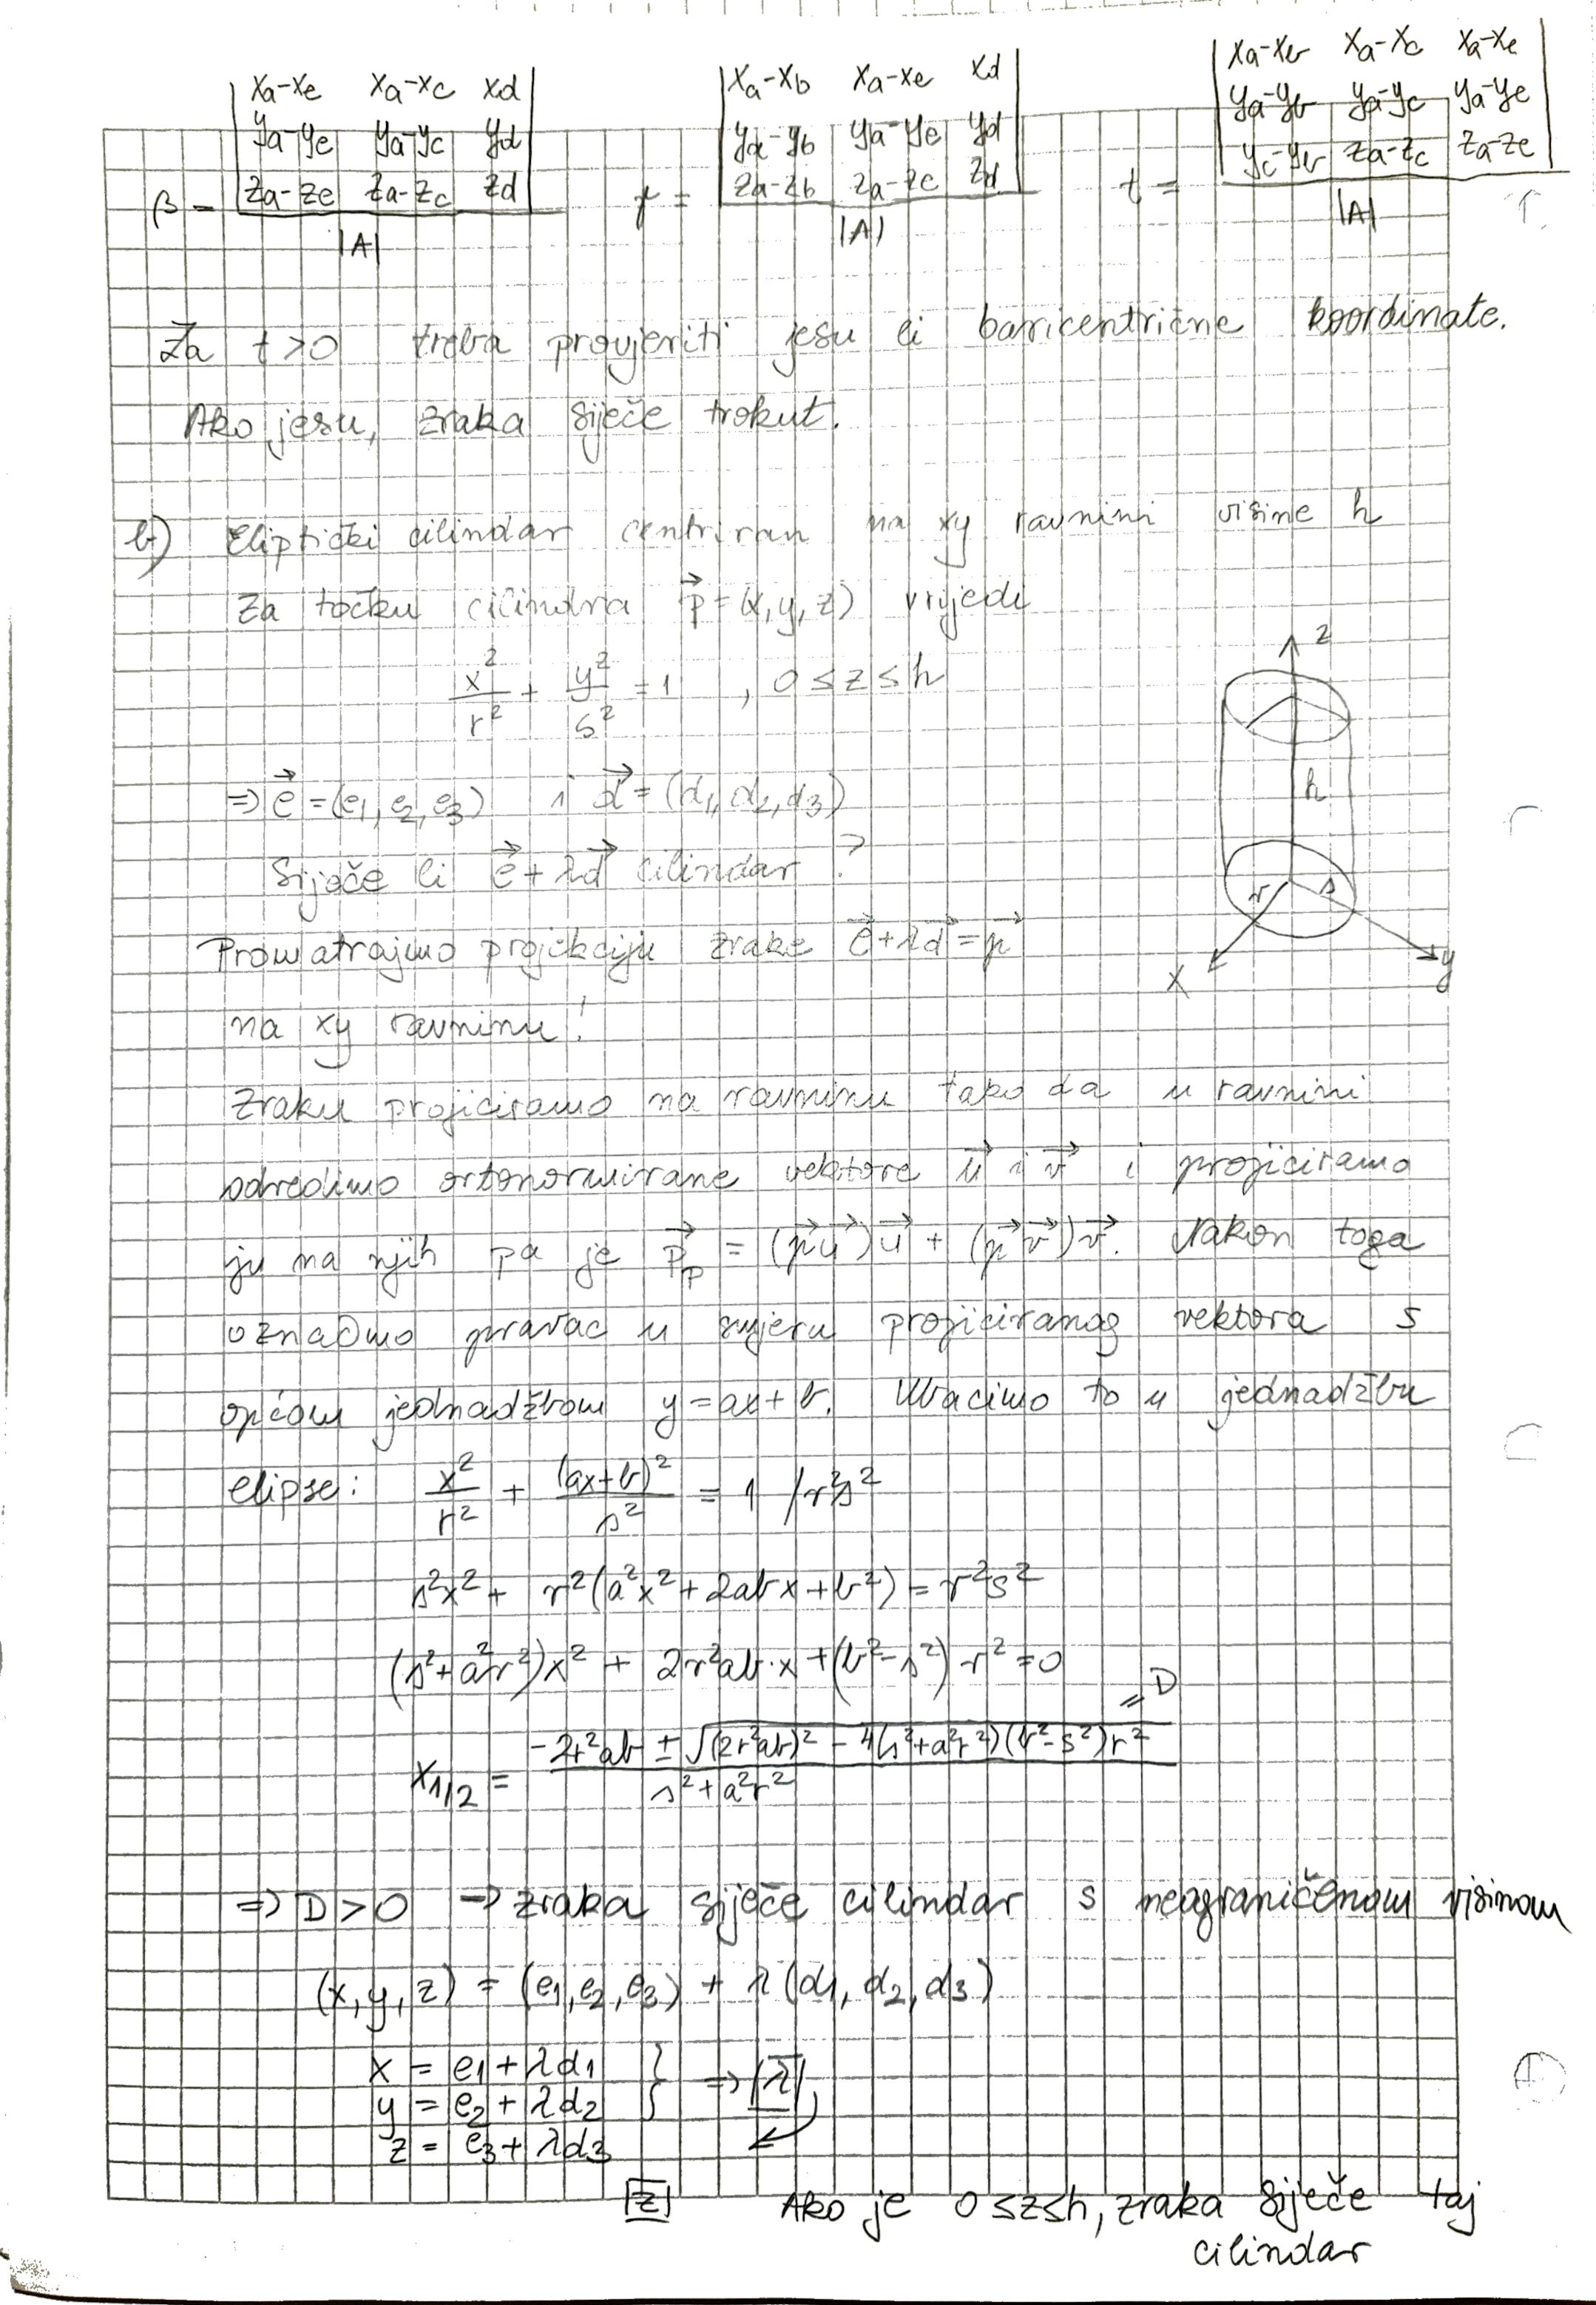 β = | xa-xe xa-xc xd | ya-ye ya-yc yd | za-ze za-zc zd | / |A|
γ = | xa-xb xa-xe xd | ya-yb ya-ye yd | za-zb za-zc zd | / |A|
t = | xa-xb xa-xc xa-xe | ya-yb ya-yc ya-ye | yc-yb za-zc za-ze | / |A|
Za t>0 treba provjeriti jesu li baricentrične koordinate.
Ako jesu, zraka siječe trokut.
b) Eliptički cilindar centriran na xy ravnini visine h
Za točku cilindra p⃗=(x,y,z) vrijedi
x²/r² + y²/s² = 1 , 0≤z≤h
z
h
r s
x y
⇒ e⃗=(e1,e2,e3) i d⃗=(d1,d2,d3)
Siječe li e⃗+λd⃗ cilindar?
Promatrajmo projekciju zrake e⃗+λd⃗=p⃗
na xy ravninu!
Zraku projiciramo na ravninu tako da u ravnini
odredimo ortonormirane vektore u⃗ i v⃗ i projiciramo
ju na njih pa je p⃗p = (p⃗u⃗)u⃗ + (p⃗v⃗)v⃗. Nakon toga
označimo pravac u smjeru projiciranog vektora s
općom jednadžbom y=ax+b. Ubacimo to u jednadžbu
elipse: x²/r² + (ax+b)²/s² = 1 /r²s²
s²x² + r²(a²x²+2abx+b²) = r²s²
(s²+a²r²)x² + 2r²ab·x + (b²-s²) r² = 0
= D
x1/2 = (-2r²ab ± √((2r²ab)² - 4(s²+a²r²)(b²-s²)r²)) / (s²+a²r²)
⇒ D>0 → zraka siječe cilindar s neograničenom visinom
(x,y,z) = (e1,e2,e3) + λ(d1,d2,d3)
x = e1+λd1
y = e2+λd2 } ⇒ |λ|
z = e3+λd3
|z| Ako je 0≤z≤h, zraka siječe taj
cilindar